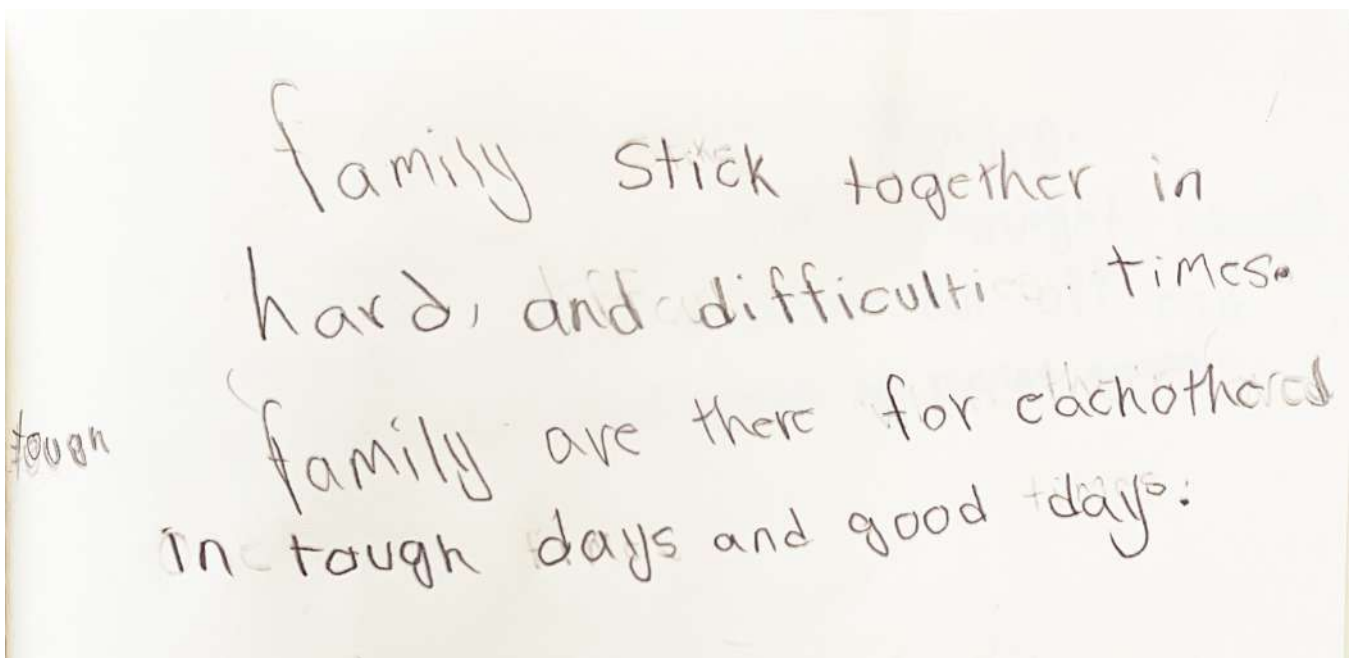 family stick together in
hard, and difficulti times.
family are there for eachother
tough
in tough days and good days.